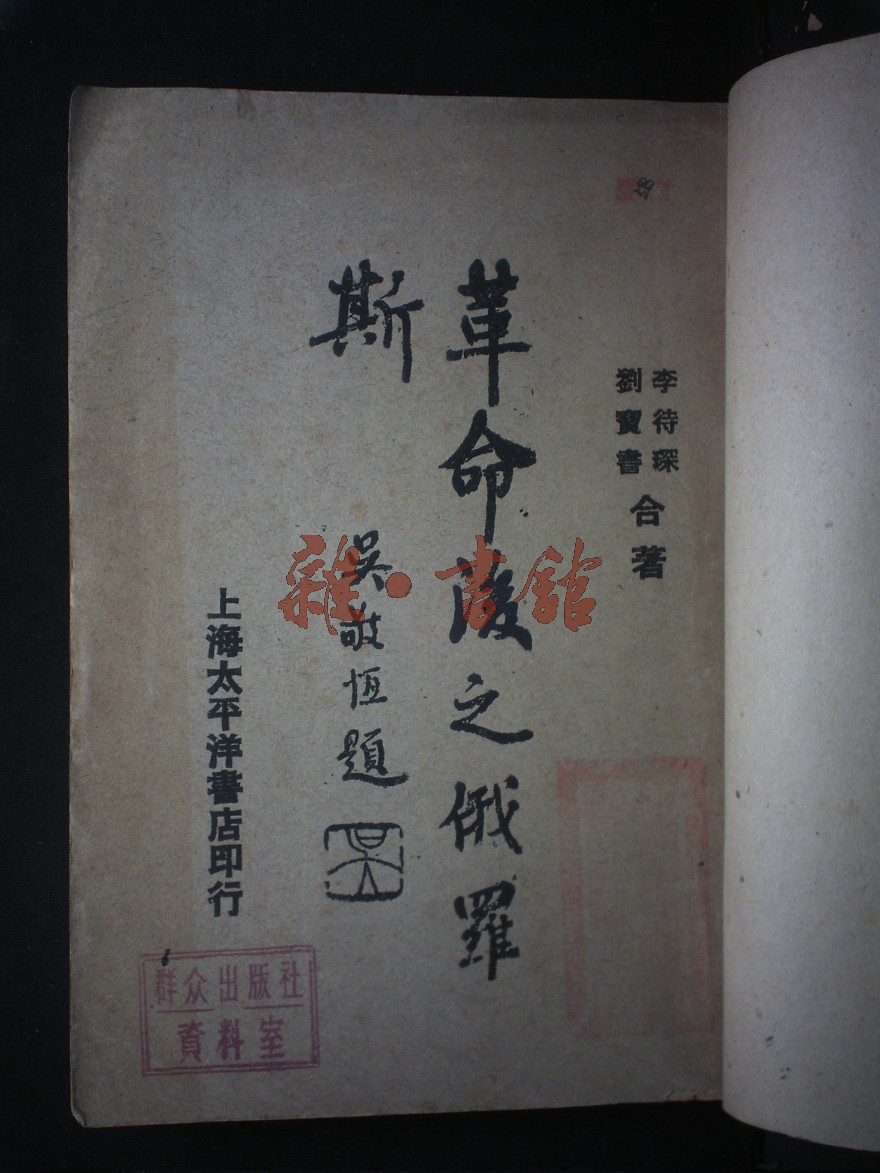 李待琛
劉寶書
合著
革命後之俄羅
斯
吳敬恆題
上海太平洋書店印行
群众出版社
資料室
雜·書館